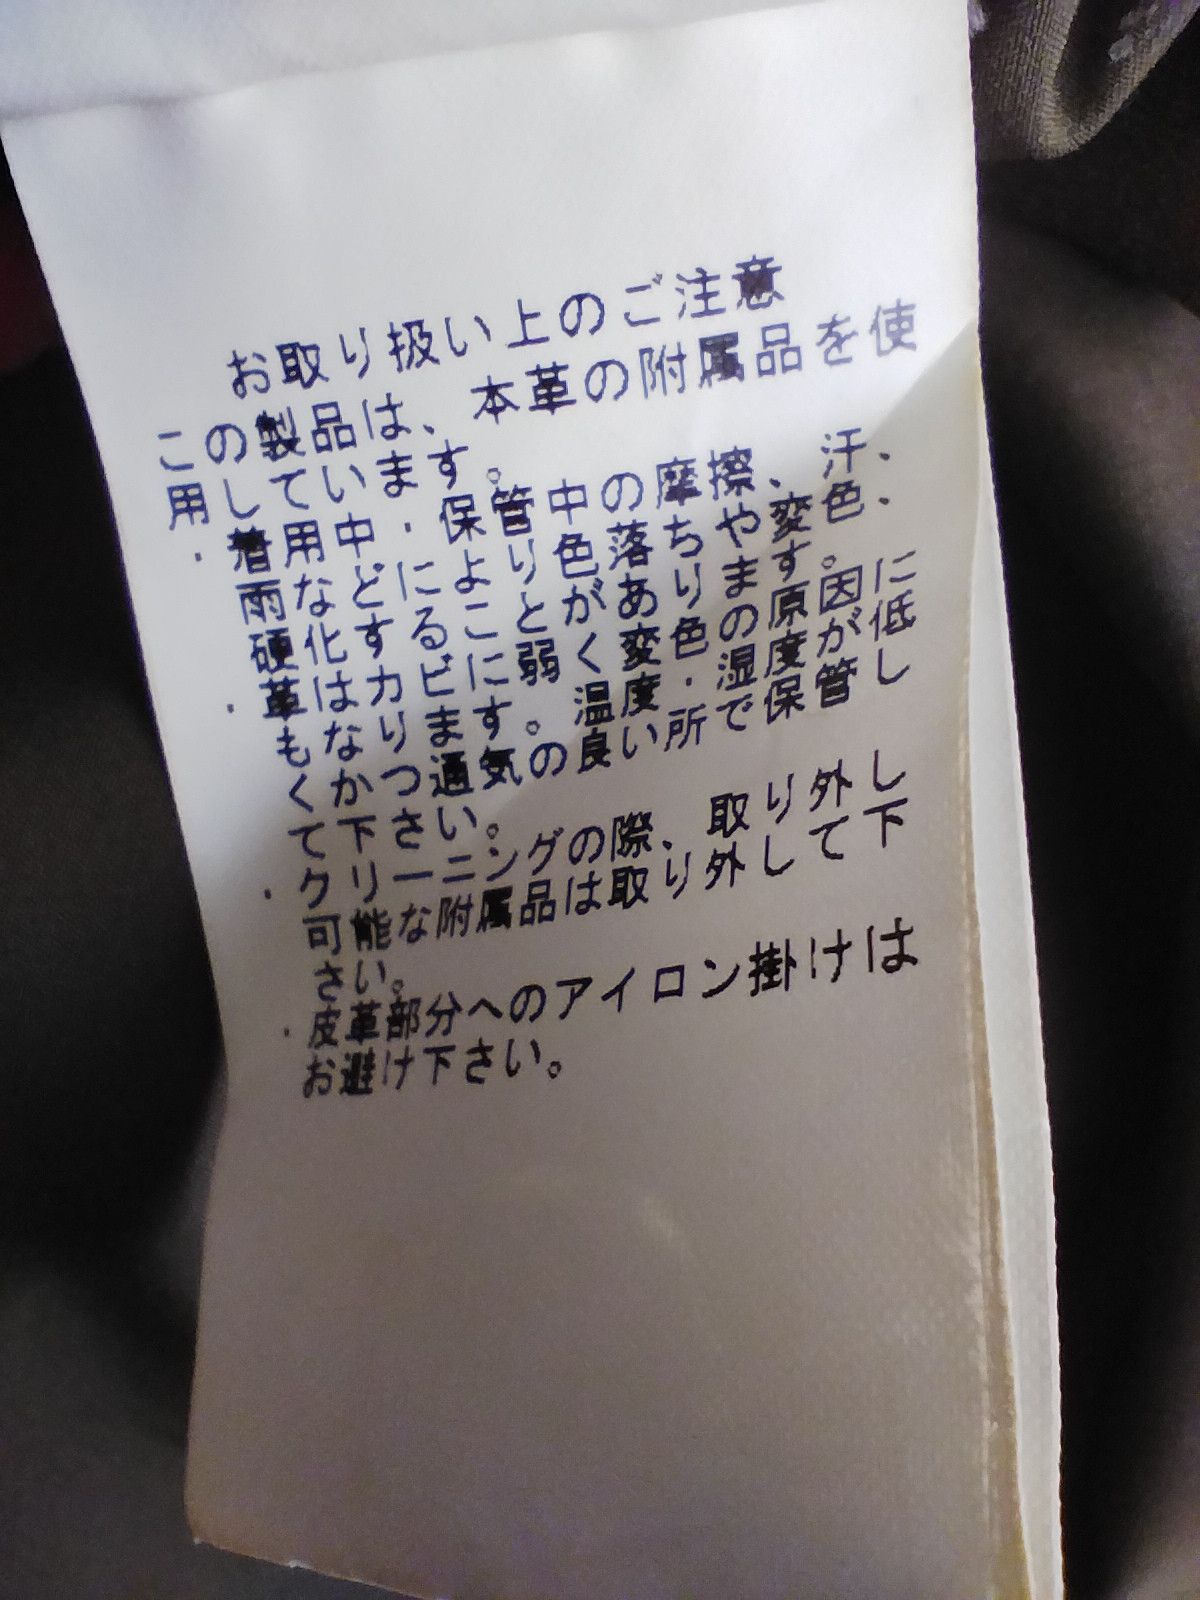 お取り扱い上のご注意
この製品は、本革の附属品を使
用しています。
・着用中・保管中の摩擦、汗、
雨などにより色落ちや変色、
硬化することがあります。
・革はカビに弱く変色の原因に
もなります。温度・湿度が低
くかつ通気の良い所で保管し
て下さい。
・クリーニングの際、取り外し
可能な附属品は取り外して下
さい。
・皮革部分へのアイロン掛けは
お避け下さい。